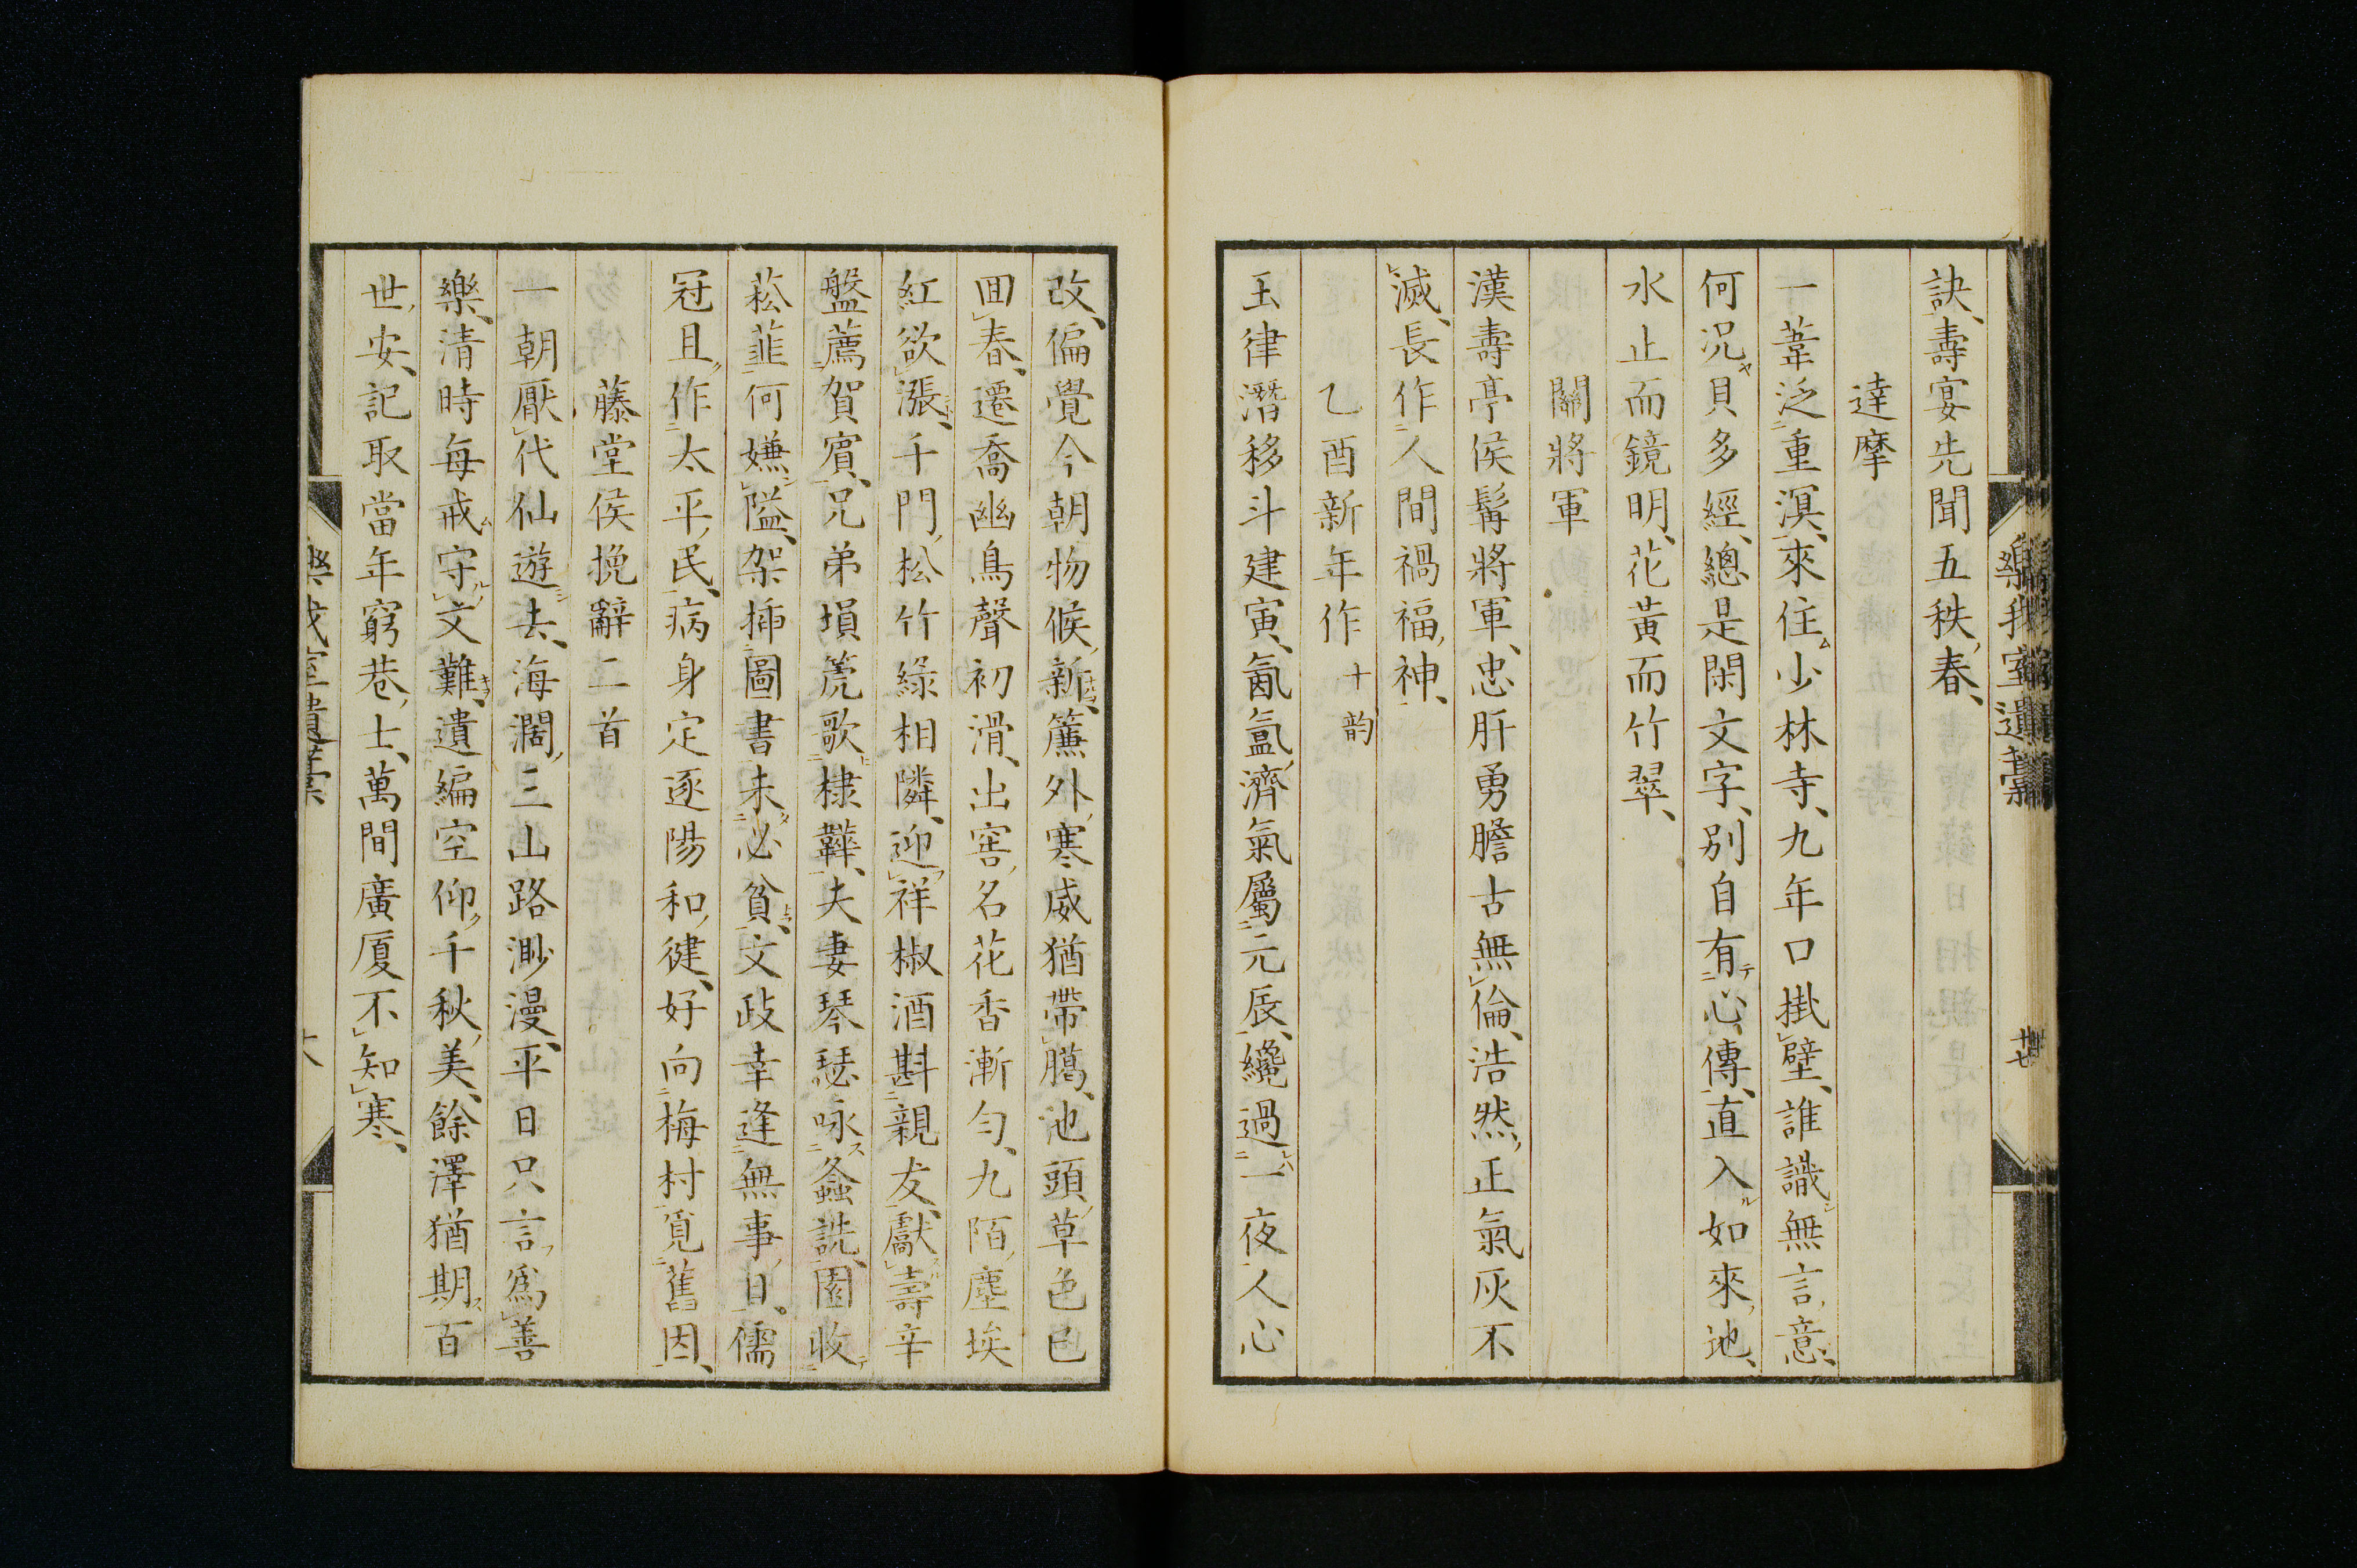 訣壽宴先聞五秩春
達摩
一葦泛重溟來住少林寺九年口掛壁誰識無言意
何況貝多經總是閑文字別自有心傳直入如來地
水止而鏡明花黃而竹翠
關將軍
漢壽亭侯髯將軍忠肝勇膽古無倫浩然正氣灰不
滅長作人間禍福神
乙酉新年作 十韵
玉律潛移斗建寅氤氳濟氣屬元辰纔過一夜人心
改偏覺今朝物候新簾外寒威猶帶臈池頭草色已
回春遷喬幽鳥聲初滑出窖名花香漸勻九陌塵埃
紅欲漲千門松竹綠相隣迎祥椒酒斟親友獻壽辛
盤薦賀賓兄弟塤箎歌棣韡夫妻琴瑟咏螽詵園收
菘韮何嫌隘架揷圖書未必貧文政幸逢無事日儒
冠且作太平民病身定逐陽和健好向梅村覓舊因
藤堂侯挽辭二首
一朝厭代仙遊去海濶三山路渺漫平日只言爲善
樂清時每戒守文難遺編空仰千秋美餘澤猶期百
世安記取當年窮巷士萬間廣厦不知寒
樂我室遺稾
廿七